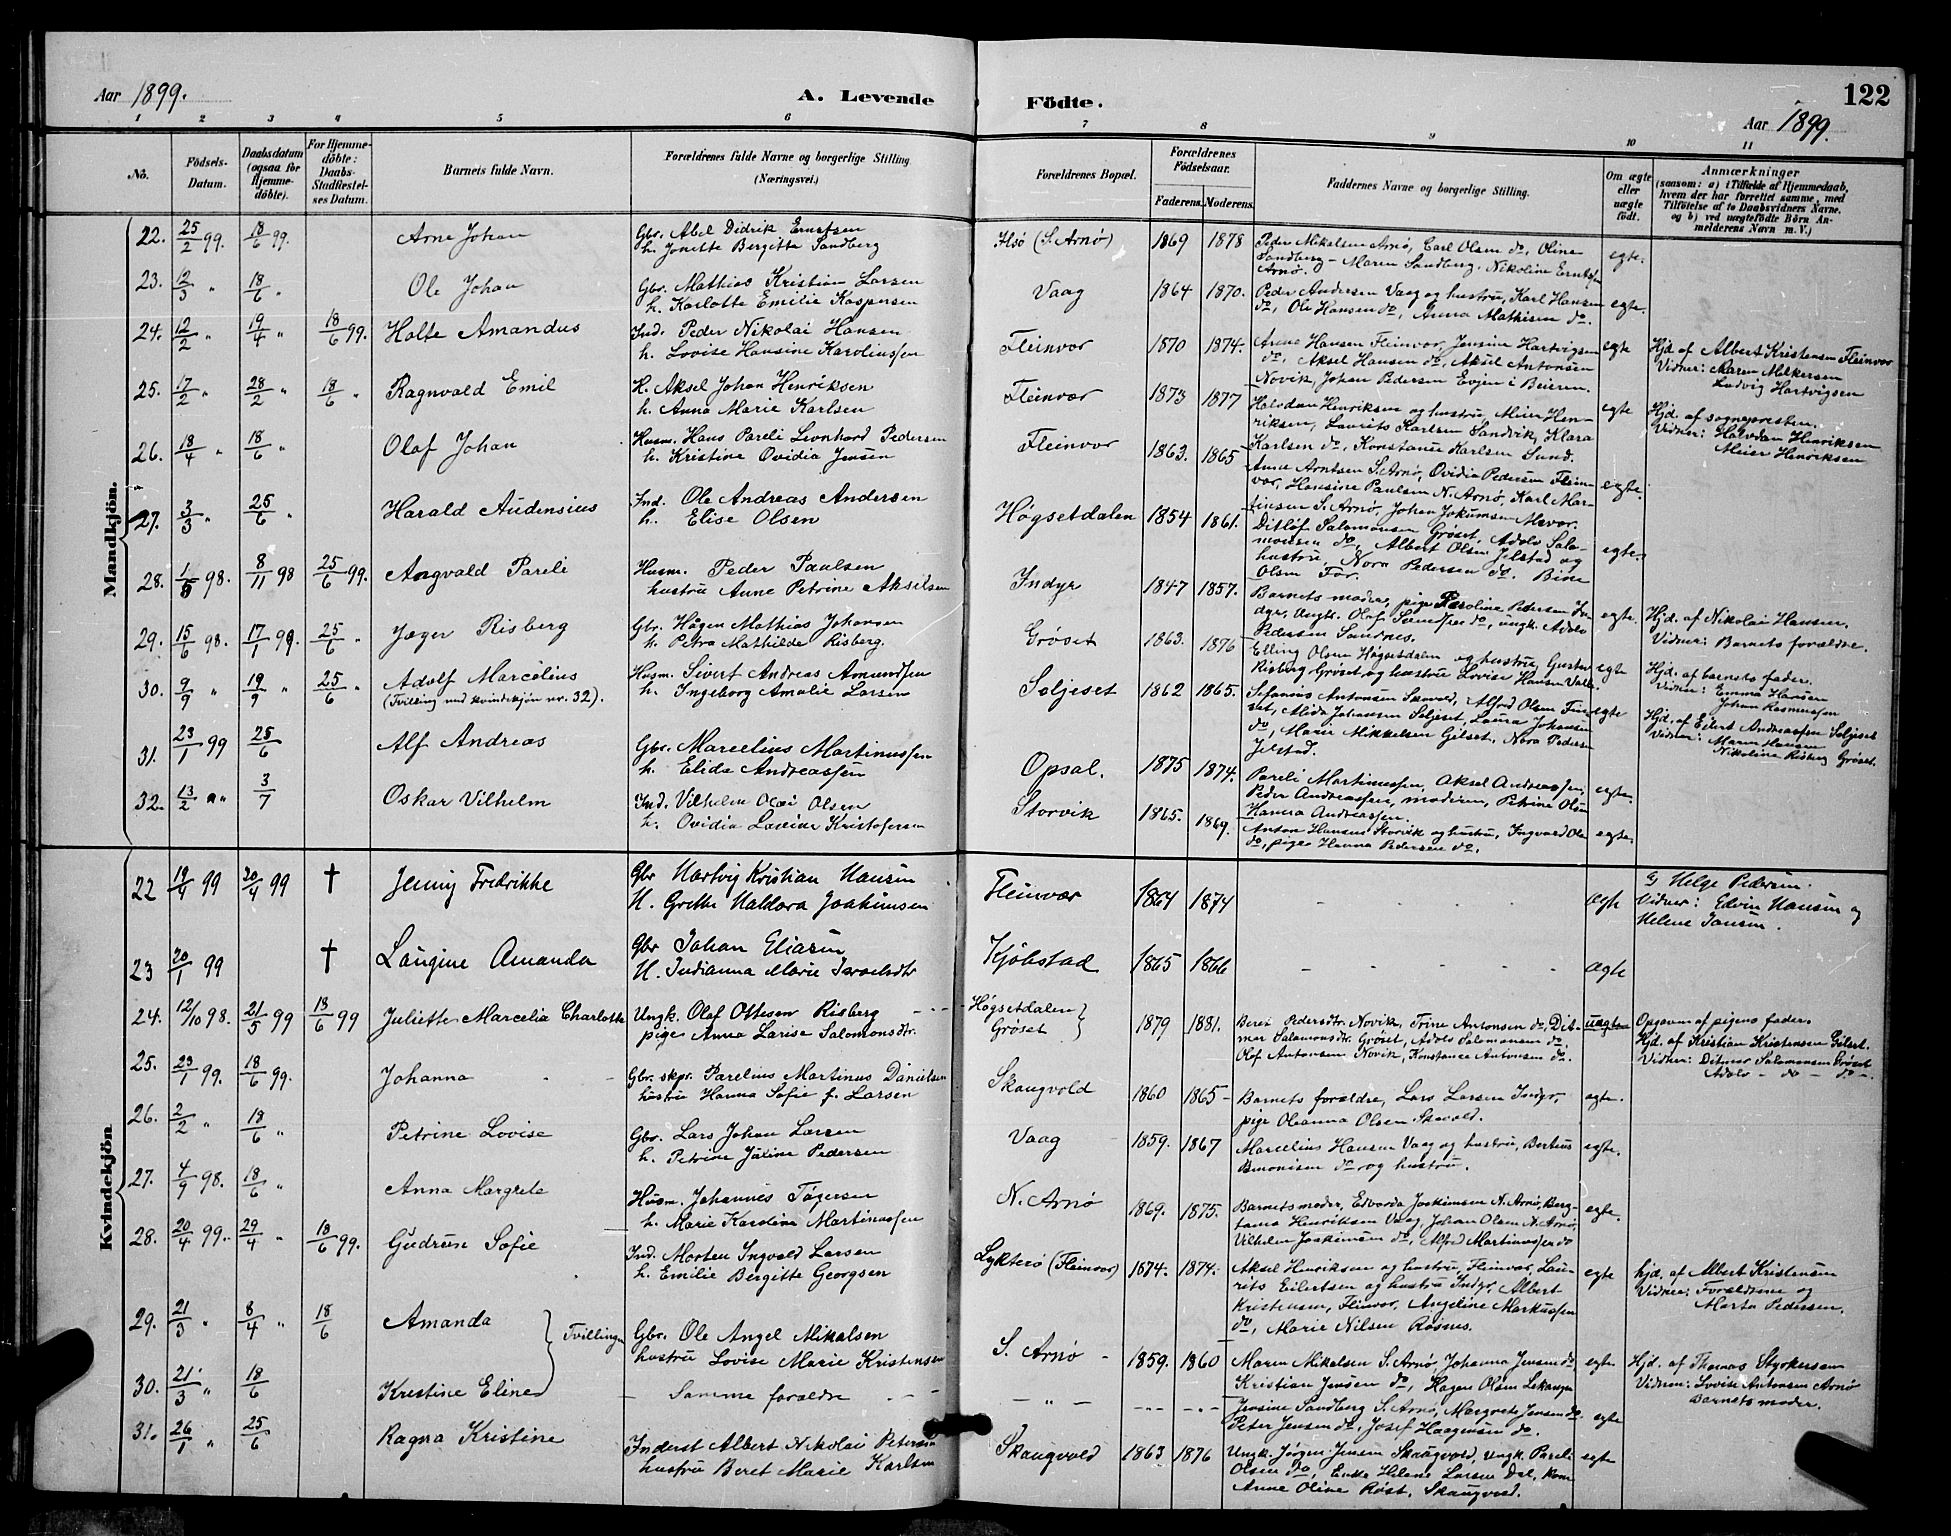 Aar 1899.
A. Levende Födte.
122
Aar 1899.
1 2 3 4 5 6 7 8 9 10 11
No.
Födsels-Datum.
Daabsdatum (ogsaa for Hjemme-döbte).
For Hjemme-döbte: Daabs-Stadfæstel-ses Datum.
Barnets fulde Navn.
Forældrenes fulde Navne og borgerlige Stilling. (Næringsvei.)
Forældrenes Bopæl.
Forældrenes Födselsaar.
Faderens. Moderens.
Faddernes Navne og borgerlige Stilling.
Om ægte eller uægte födt.
Anmærkninger
(saasom: a) i Tilfælde af Hjemmedaab, hvem der har forrettet samme, med Tilföielse af to Daabsvidners Navne, og b) ved uægtefödte Börn An-melderens Navn m. V.)
Mandkjön.
22. 25/2 99. 18/6 99. Arne Johan
Gbr. Abel Didrik Erntsen
h. Jonette Bergitte Sandberg
Hsø (S. Arnø) 1869 1878
Peder Mikelsen Arnø, Carl Olsen do, Oline
Sandberg - Maren Sandberg. Nikoline Erntsen
Arnø.
egte.
23. 12/3 " 18/6 " Ole Johan
Gbr. Mathias Kristian Larsen
h. Karlotte Emilie Kaspersen
Vaag 1864 1870.
Peder Andersen Vaag og hustru, Karl Hansen
do, Ole Hansen do, Anna Mathisen do.
egte.
24. 12/2 " 19/4 " 18/6 99. Halte Amandus
Ind. Peder Nikolai Hansen
h. Lovise Hansine Karoliussen
Fleinvær 1870 1874.
Anna Hansen Fleinvær, Jensine Hartvigsen
do, Aksel Hansen do, Aksel Antonsen
Novik, Johan Pedersen Evjen i Beieren.
egte
Hjd. af Albert Kristensen Fleinvær
Vidner: Maren Mikersen
Ludvig Hartvigsen
25. 17/2 " 28/2 " 18/6 " Ragnvald Emil
H. Aksel Johan Henriksen
h. Anna Marie Karlsen
Fleinvær 1873 1877
Halvdan Henriksen og hustru, Meier Hen-
riksen, Laurits Karlsen Sandvik, Klara
Karlsen do, Konstanse Karlsen Sund.
egte
Hjd. af sognepresten.
Vidner: Halvdan Henriksen
Meier Henriksen
26. 18/4 " 18/6 " Olaf Johan
Husm. Hans Pareli Leonhard Pedersen
h. Kristine Ovidia Jensen
Fleinvær 1863. 1865
Anne Arntsen S. Arnø, Ovidia Pedersen Flein-
vær, Hansine Paulsen N. Arnø, Karl Mar-
tinsen S. Arnø, Johan Jokumsen Alsvor.
egte.
27. 3/3 " 25/6 " Harald Audensius
Ind. Ole Andreas Andersen
h. Elise Olsen
Høgsetdalen 1854 1861.
Ditløf Salomonsen Grøset, Adolv Salo-
monsen do, Albert Olsen Jelstad og
hustru, Nora Pedersen do. Bine
Olsen For.
egte.
28. 1/8 98. 8/11 98 25/6 99. Angvald Pareli
Husm. Peder Paulsen
hustru Anne Petrine Akselsen
Indyr 1847 1857.
Barnets moder, pige Paroline Pedersen In-
dyr, ungk. Olaf Svendsen do, ungk. Adolv
Pedersen Sandnes.
egte
Hjd. af Nikolai Hansen.
Vidner: Barnets forældre.
29. 15/6 98. 17/1 99. 25/6 " Jæger Risberg
Gbr. Hågen Mathias Johansen
h. Petra Mathilde Risberg.
Grøset 1863. 1876
Elling Olsen Høgsetdalen og hustru, Gustav
Risberg Grøset og hustru Lovise Hansen Valle.
egte
Hjd. af barnets fader.
Vidner: Emma Hansen
Johan Rasmussen
30. 9/9 " 19/9 " 25/6 " Adolf Marcelius
(Tvilling med kvindekjøn nr. 32).
Husm. Sivert Andreas Amundsen
h. Ingeborg Amalie Larsen
Soljeset 1862 1865.
Stefanus Antonsen Skavold, Alfred Olsen Finn-
set, Alida Johansen Soljeset, Laura Johansen
do, Marie Mikkelsen Gilset, Nora Pedersen
Jelstad.
egte
Hjd. af Eilert Andreassen Soljeset
Vidner: Maren Hansen
Nikoline Risberg Grøset.
31. 23/1 99 25/6 Alf Andreas
Gbr. Marcelius Martinussen
h. Elida Andreassen
Opsal. 1875 1874.
Pareli Martinussen, Aksel Andreassen,
Peder Andreassen, moderen, Petrine Olsen
Hanna Andreassen.
egte.
32. 13/2 " 3/7 Oskar Vilhelm
Ind. Vilhelm Olai Olsen
h. Ovidia Lavine Kristofersen
Storvik 1865. 1869.
Anton Hansen Storvik og hustru, Ingvard Ole
do, pige Hanna Pedersen do.
egte.
Kvindekjön
22 19/4 99 20/4 99 † Jenny Fredrikke
Gbr Hartvig Kristian Hansen
H. Grethe Haldora Joakimsen
Fleinvær 1864 1874
ægte
v/ Helge Pedersen.
Vidner: Edvin Hansen og
Helene Jansen.
23 20/1 99 † Laugine Amanda
Gbr Johan Eliasen
H. Indianna Marie Israelsdtr
Kjøbstad 1865 1866
ægte
24. 12/10 98. 21/5 99 18/6 99 Juliette Marcelia Charlotte
Ungk. Olaf Ottesen Risberg
pige Anna Larise Salomonsdtr.
Høgsetdalen
Grøset
1879 1881.
Beret Pedersdtr. Novik, Trine Antonsen do, Dit-
mar Salamonsdtr. Grøset, Adolv Salamonsen do.
Olaf Antonsen Novik, Konstance Antonsen do.
uægte
Opgaven af pigens fader.
Hjd. af Kristian Kristensen Gilset.
Vidner: Ditmar Salamonsen Grøset
Adolv - do - do -
25. 23/1 99. 18/6 99. Johanna
Gbr. skpr. Parelius Martinus Danielsen
hustru Hanna Sofie f. Larsen
Skaugvold 1860 1865
Barnets forældre, Lars Larsen Indyr,
pige Oleanna Olsen Skavold.
egte.
26. 2/2 " 18/6 " Petrine Lovise
Gbr. Lars Johan Larsen
h. Petrine Jåline Pedersen
Vaag 1859. 1867
Marcelius Hansen Vaag og hustru, Berteus
Benonisen do og hustru.
egte.
27. 4/9 98. 18/6 " Anna Margrete
Husm. Johannes Tøgersen
h. Marie Karoline Martinussen
N. Arnø 1869. 1875.
Barnets moder, Edvarda Joakimsen N. Arnø, Berg-
tana Henriksen Vaag, Johan Olsen N. Arnø,
Vilhelm Joakimsen do, Alfred Martinussen do
egte.
28. 20/4 99. 29/4 " 18/6 99. Gudrun Sofie
Ind. Morten Ingvald Larsen
h. Emilie Bergitte Georgsen
Lykterø (Fleinvær) 1874. 1874.
Aksel Henriksen og hustru, Fleinvær, Lau-
rits Eilertsen og hustru Indyr, Albert
Kristensen, Fleinvær, Angeline Markussen
do, Marie Nilsen Røsnes.
egte
hjd. af Albert Kristensen
Vidner: Forældrene og
Marta Pedersen.
29. 21/3 " 8/4 " 18/6 Amanda
Tvillinger
Gbr. Ole Angel Mikalsen
hustru Lovise Marie Kristensen
S. Arnø 1859. 1860
Maren Mikelsen S. Arnø, Johanna Jensen do
Kristian Jensen do, Hagen Olsen Lekanger
egte.
Hjd. af Thomas Styrkersen
Vidner: Lovise Antonsen Arnø
Barnets moder.
30. 21/3 " 18/6 Kristine Eline
Samme forældre
Jensine Sandberg S. Arnø, Margrete Jensen do.
Peter Jensen do, Josef Haagensen do.
egte
31. 26/1 " 25/6 Ragna Kristine
Inderst Albert Nikolai Petersen
hustru Beret Marie Karlsen
Skaugvold 1863 1876
Ungk. Jørgen Jensen Skaugvold, ungk. Pareli
Olsen do, Enke Helene Larsen Dal, kone
Anne Oline Røst, Skaugvold.
egte